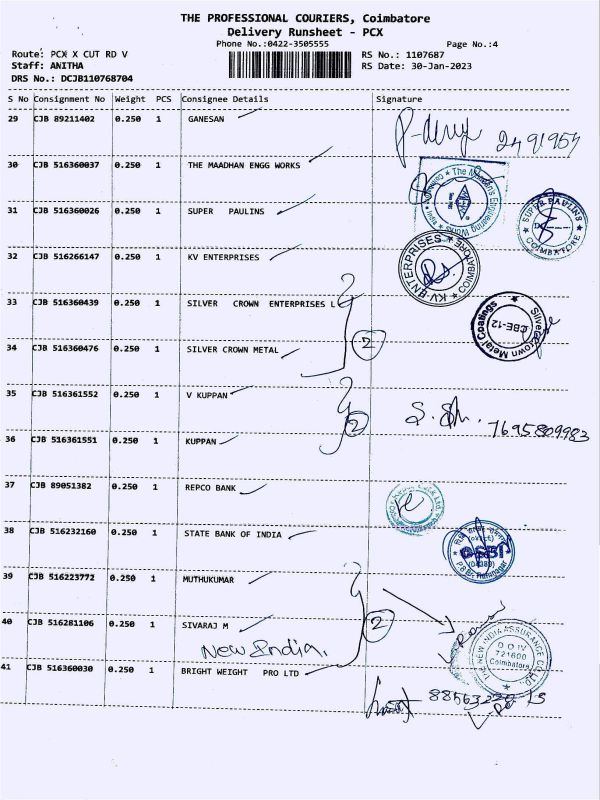 THE PROFESSIONAL COURIERS, Coimbatore
Delivery Runsheet - PCX
Phone No.:0422-3505555
Page No.:4
Route: PCX X CUT RD V
RS No.: 1107687
Staff: ANITHA
RS Date: 30-Jan-2023
DRS No.: DCJB110768704
S No Consignment No Weight PCS Consignee Details Signature
29 CJB 89211402 0.250 1 GANESAN
30 CJB 516360037 0.250 1 THE MAADHAN ENGG WORKS
31 CJB 516360026 0.250 1 SUPER PAULINS
SUPER PAULINS
COIMBATORE
32 CJB 516266147 0.250 1 KV ENTERPRISES
KV-ENTERPRISES
COIMBATORE
33 CJB 516360439 0.250 1 SILVER CROWN ENTERPRISES L
Silver Crown Metal Coatings
CBE-12
34 CJB 516360476 0.250 1 SILVER CROWN METAL
2
35 CJB 516361552 0.250 1 V KUPPAN
2
7695809983
36 CJB 516361551 0.250 1 KUPPAN
37 CJB 89051382 0.250 1 REPCO BANK
38 CJB 516232160 0.250 1 STATE BANK OF INDIA
39 CJB 516223772 0.250 1 MUTHUKUMAR
40 CJB 516281106 0.250 1 SIVARAJ M
2
New India.
THE NEW INDIA ASSURANCE CO. LTD.
D O IV
721600
Coimbatore
41 CJB 516360030 0.250 1 BRIGHT WEIGHT PRO LTD